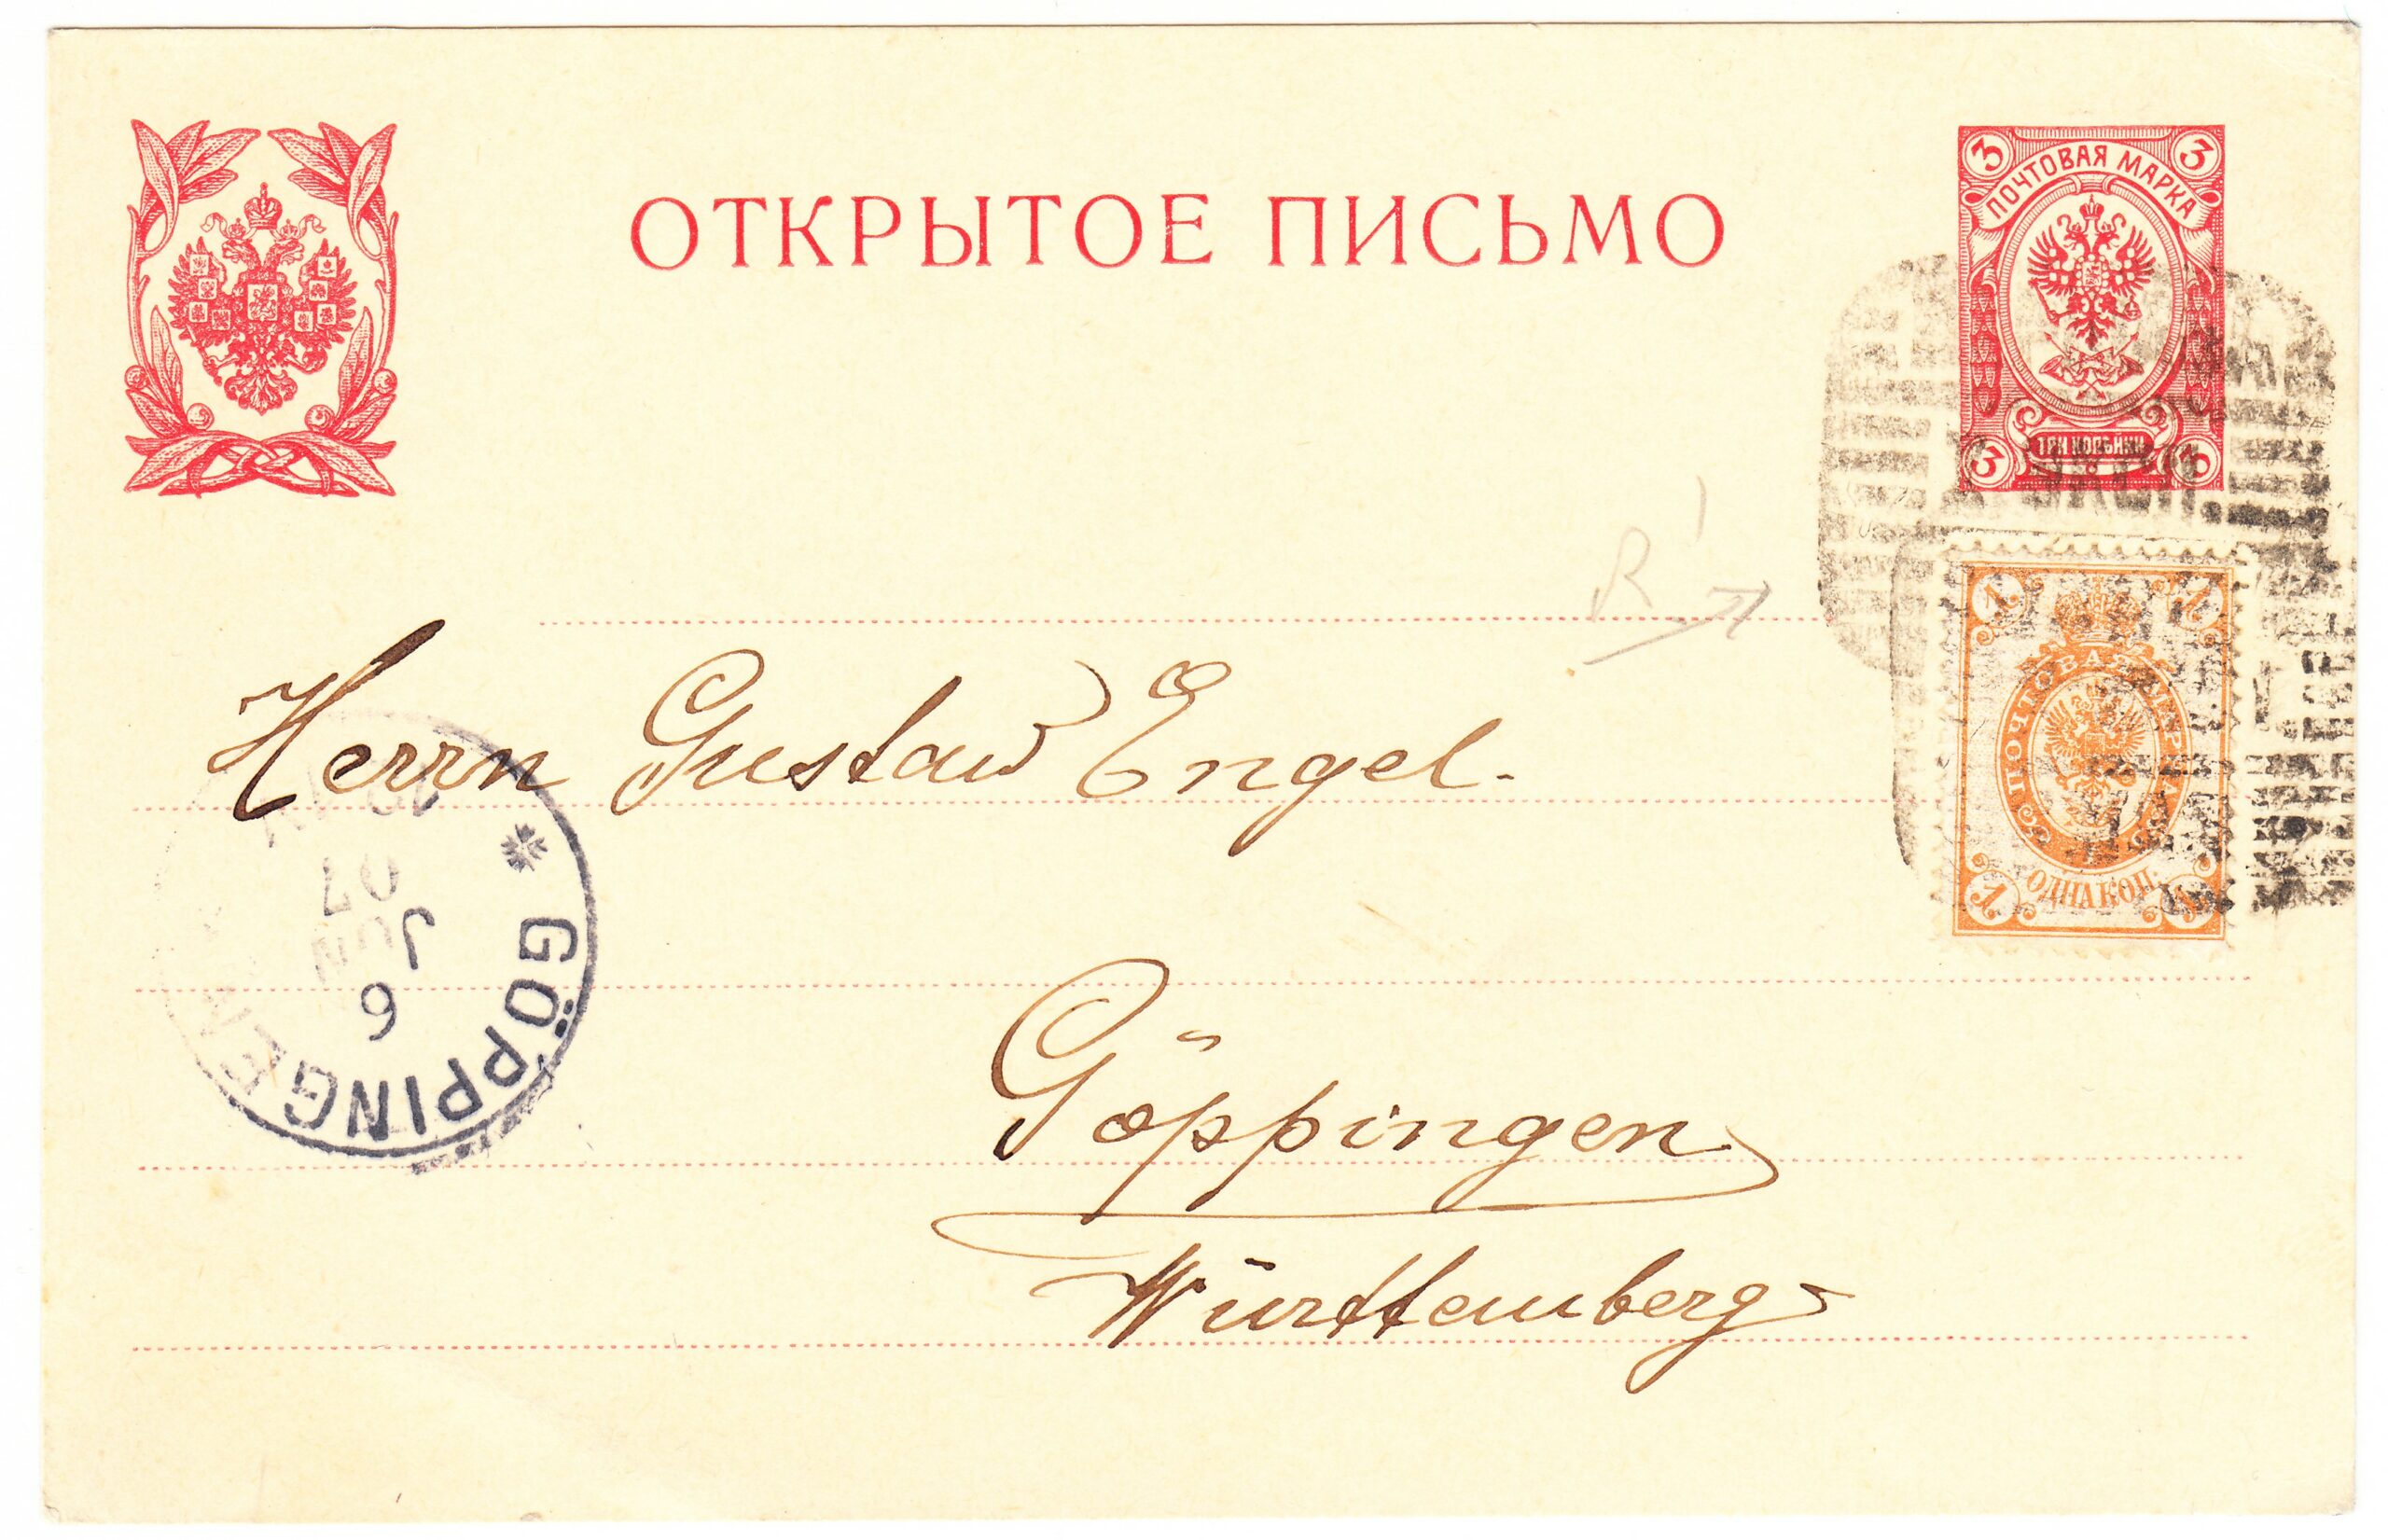 ОТКРЫТОЕ ПИСЬМО
3 3
ПОЧТОВАЯ МАРКА
ТРИ КОПѢЙКИ
3 3
1 1
ПОЧТОВАЯ МАРКА
ОДНА КОП.
1 1
Herrn Gustav Engel.
Göppingen
Württemberg
GÖPPINGEN
6
JUN
07